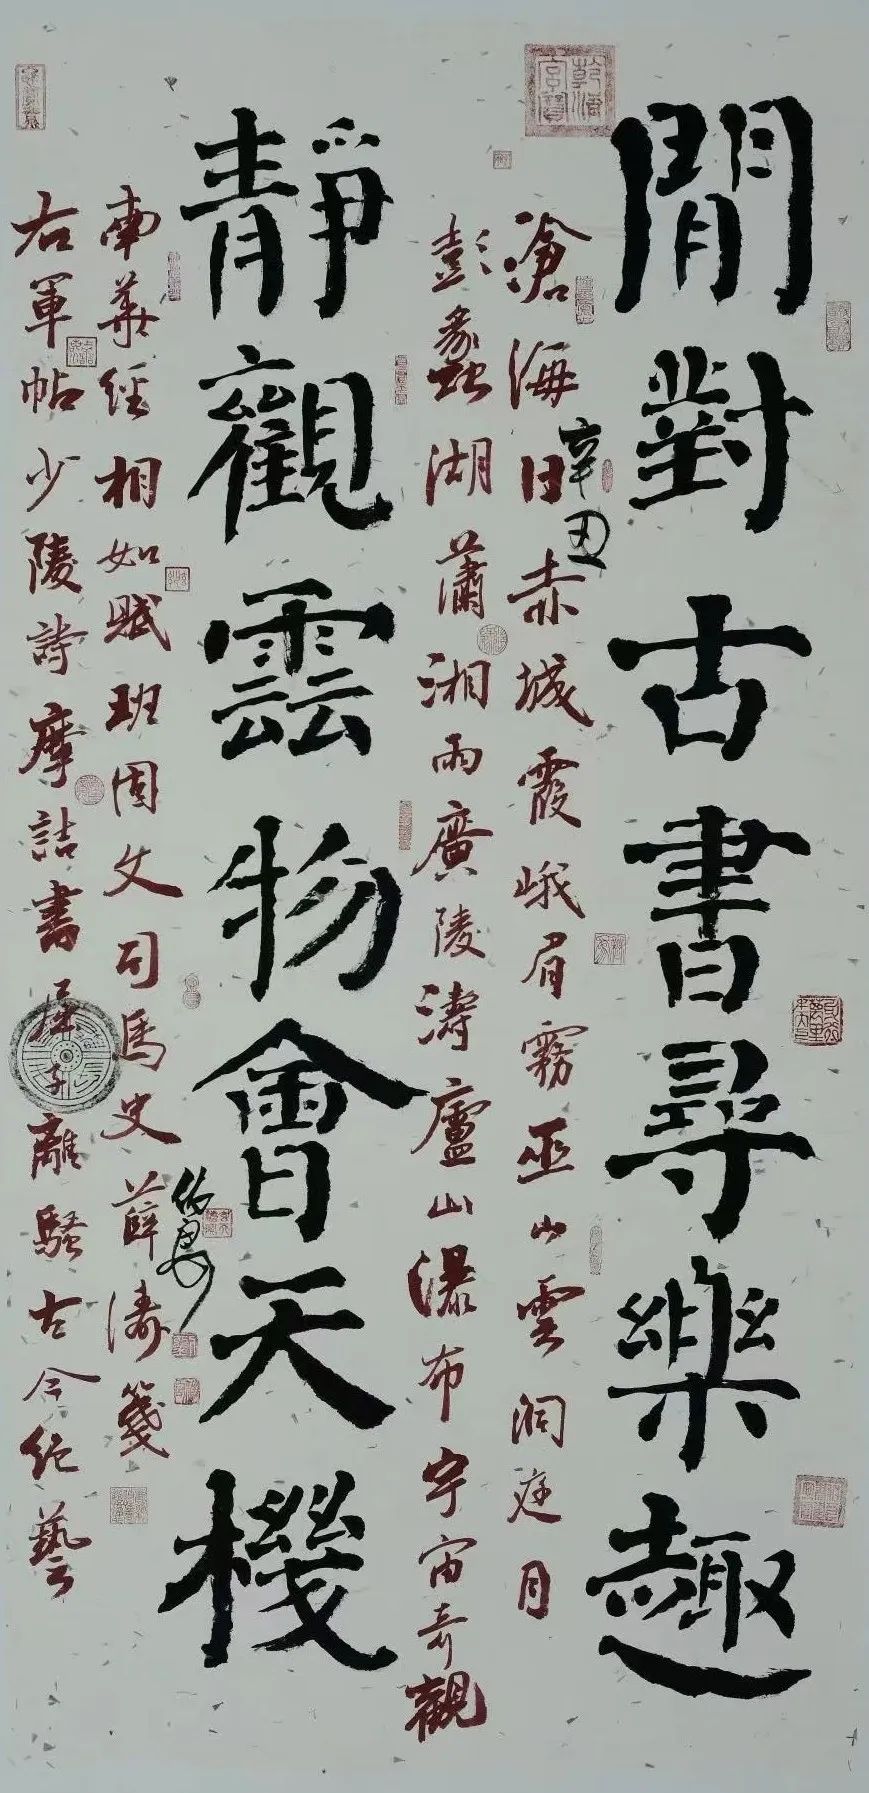 閒對古書尋樂趣
滄海日赤城霞峨眉霧巫山雲洞庭月
辛丑
彭蠡湖瀟湘雨廣陵濤廬山瀑布宇宙奇觀
靜觀雲物會天機
南華經相如賦班固文司馬史薛濤箋
右軍帖少陵詩摩詰畫屈子離騷古今絕藝